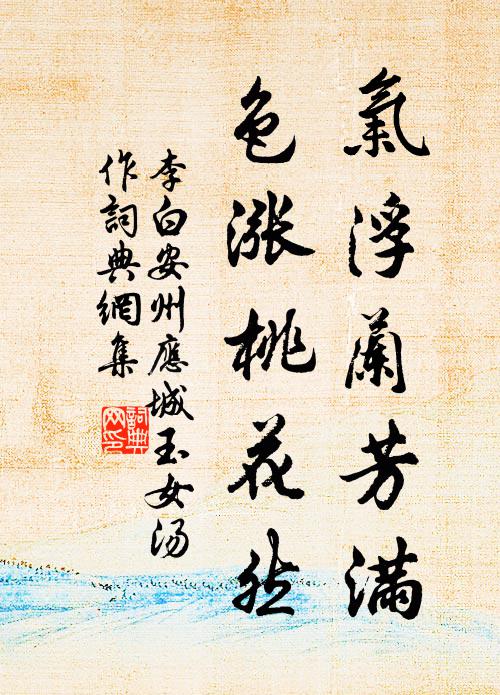 氣浮蘭芳滿
色漲桃花然
李白安州應城玉女湯
作詞典網集
詞典網印